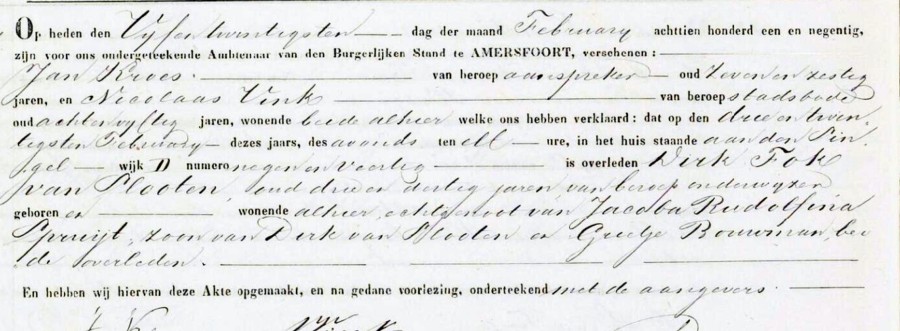 Op heden den Vijfentwintigsten dag der maand February achttien honderd een en negentig,
zijn voor ons ondergeteekende Ambtenaar van den Burgerlijken Stand te AMERSFOORT, verschenen:
Jan van beroep aanspreker oud Zevenenzestig
jaren, en Nicolaas Vink van beroep stadsbode
oud achtenvyftig jaren, wonende beide alhier welke ons hebben verklaard: dat op den drieentwin-
tigsten February dezes jaars, des avonds ten elf ure, in het huis staande aan den Sin-
gel wijk D numero negenenveertig is overleden Dirk Fok
van Slooten, oud drieendertig jaren, van beroep onderwyzer
geboren en wonende alhier, echtgenoot van Jacoba Rudolfina
Spruijt, zoon van Dirk van Slooten en Geertje Bouwman, bei
de overleden.
En hebben wij hiervan deze Akte opgemaakt, en na gedane voorlezing, onderteekend met de aangevers.